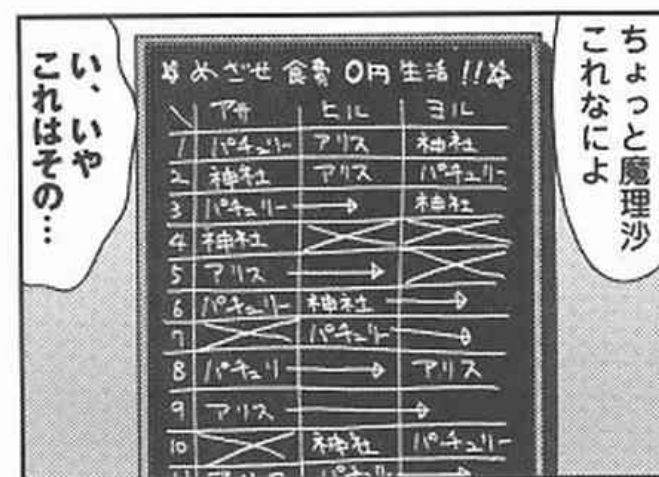 ちょっと魔理沙
これなによ
☆めざせ食費0円生活!!☆
＼ アサ ヒル ヨル
1 パチュリー アリス 神社
2 神社 アリス パチュリー
3 パチュリー → 神社
4 神社 × ×
5 アリス → ×
6 パチュリー 神社 →
7 × パチュリー →
8 パチュリ → アリス
9 アリス →
10 × 神社 パチュリー
い、いや
これはその…